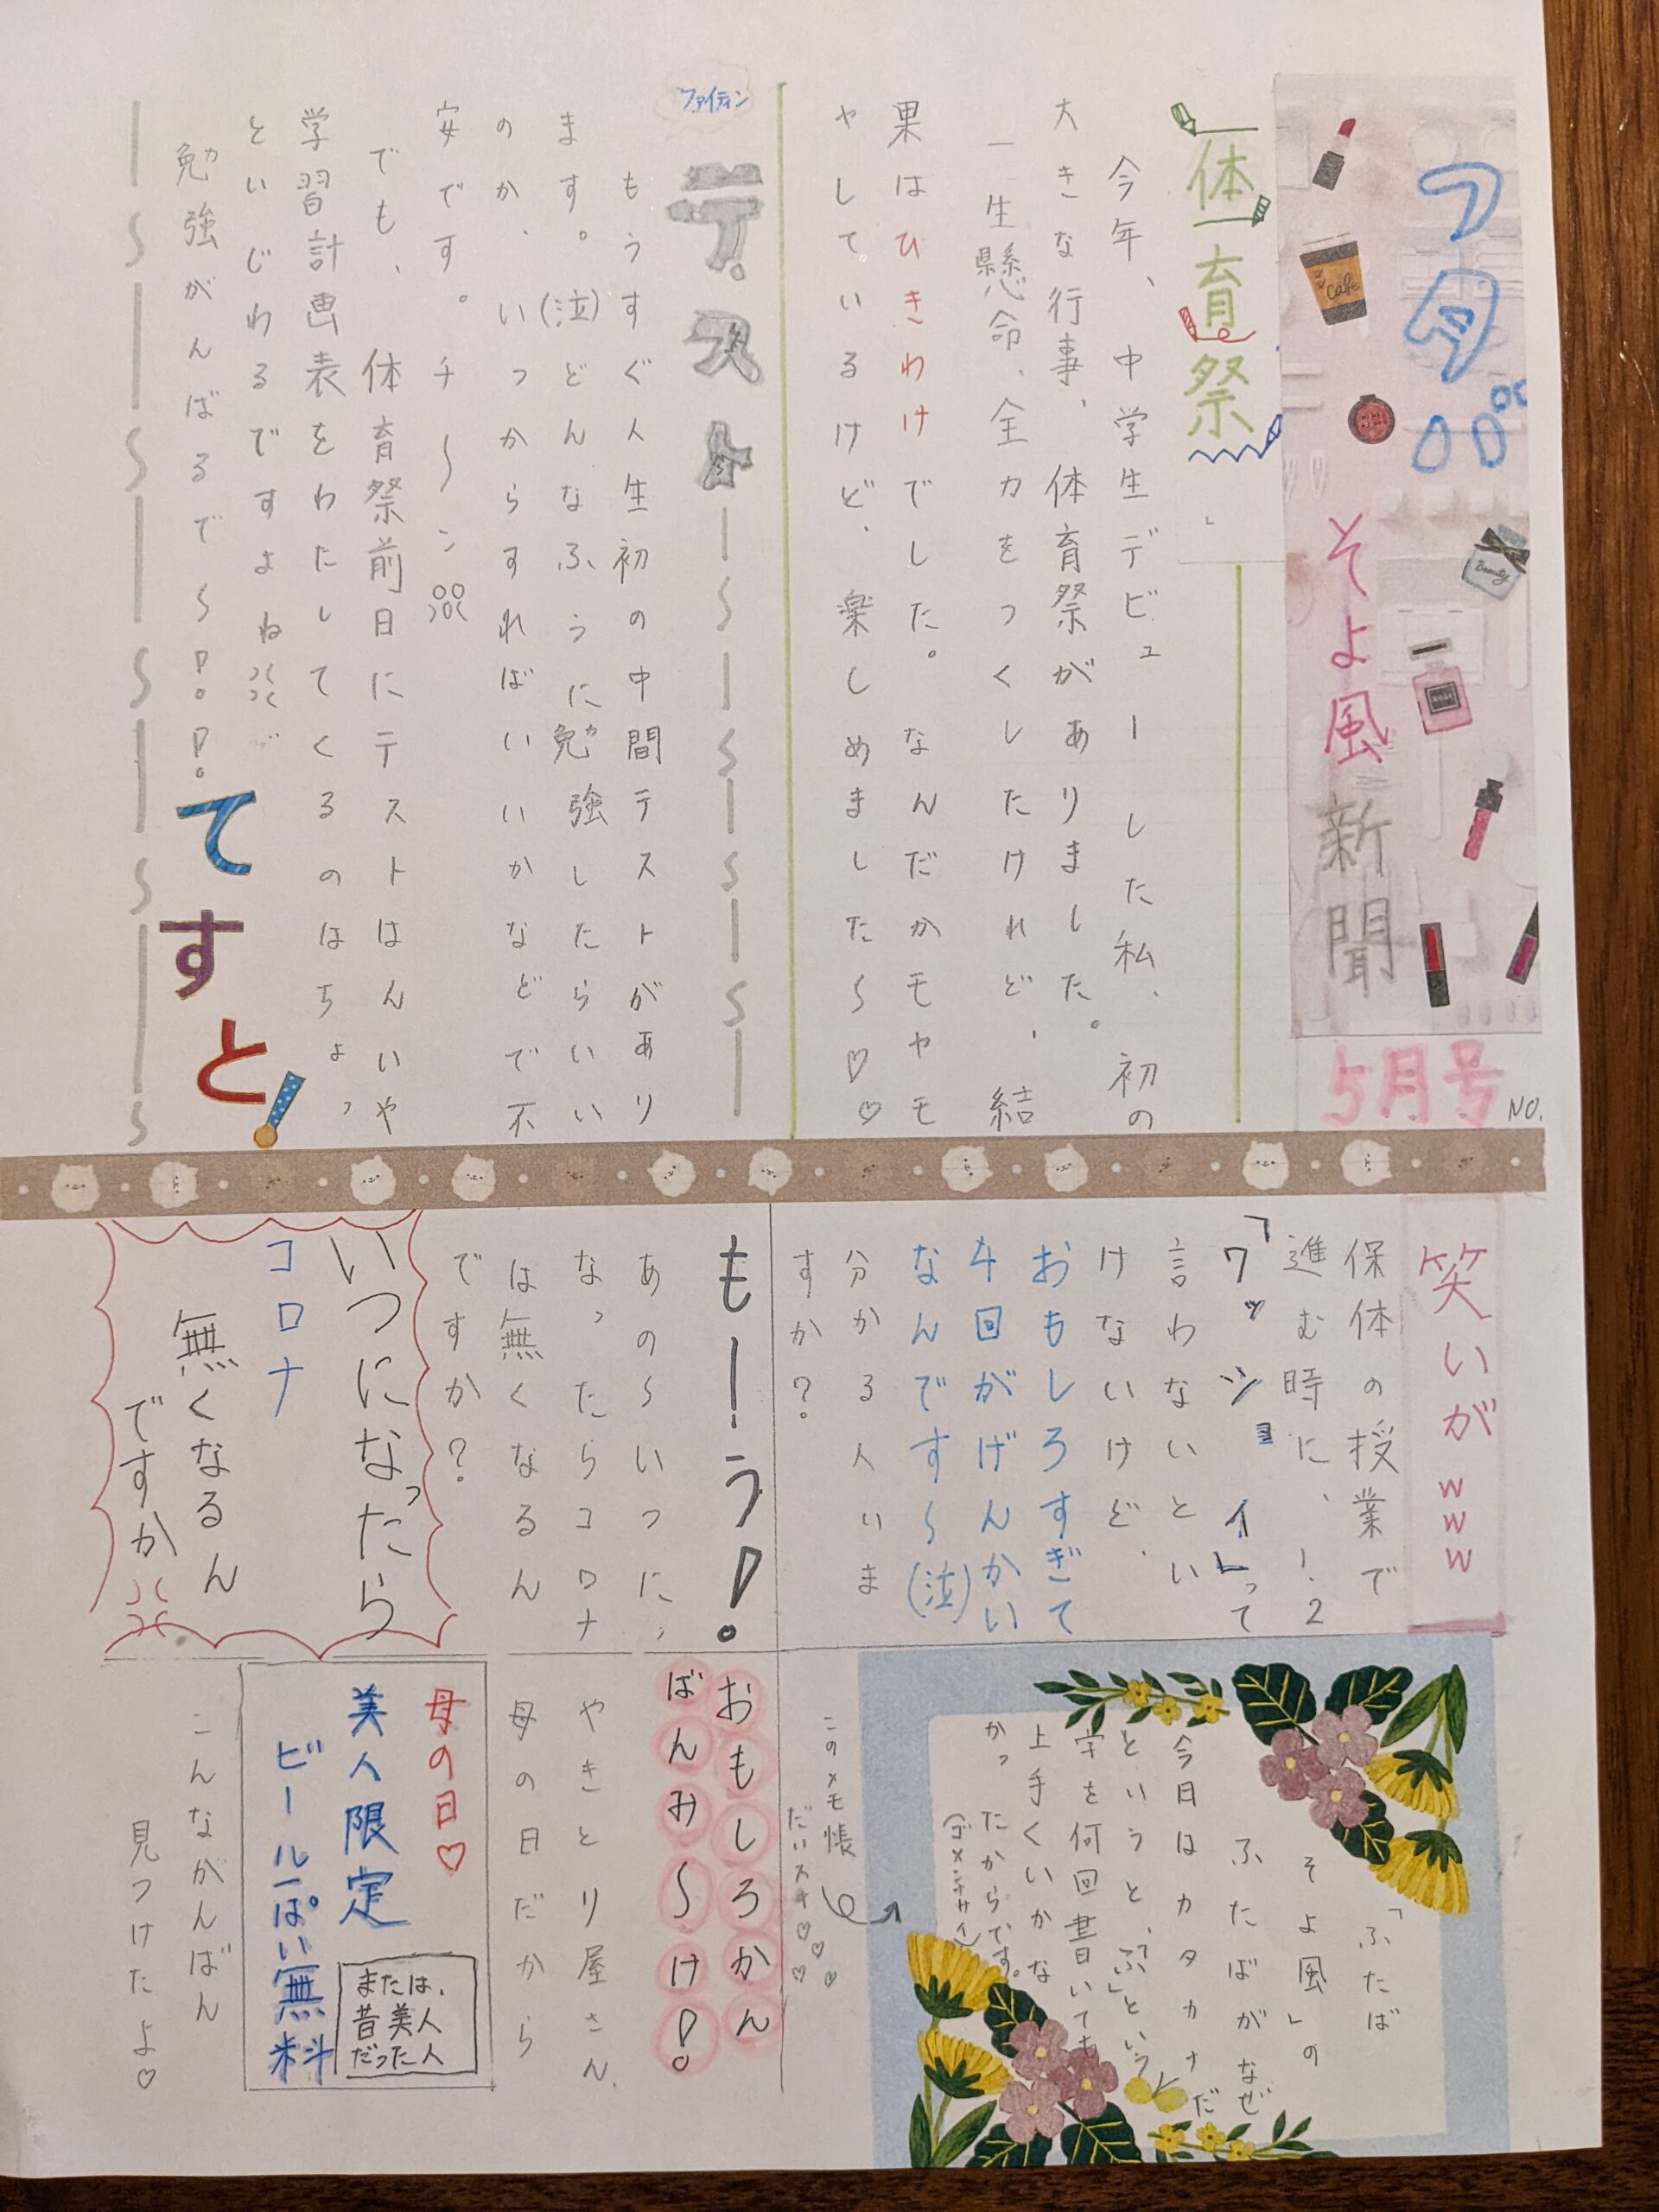 フタバ
そよ風
新聞
5月号
NO.
体育祭
今年、中学生デビューした私、初の
大きな行事、体育祭がありました。
一生懸命、全力をつくしたけれど、結
果はひきわけでした。なんだかモヤモ
ヤしているけど、楽しめました〜♡♡
ファイティン
テスト
もうすぐ人生初の中間テストがあり
ます。(泣)どんなふうに勉強したらいい
のか、いつからすればいいかなどで不
安です。チ〜ン
でも、体育祭前日にテストはんいや
学習計画表をわたしてくるのはちょっ
といじわるですよね
勉強がんばるで〜!!
てすと!
笑いがwww
保体の授業で
進む時に、1、2
「ワッショイ」って
言わないとい
けないけど、
おもしろすぎて
4回がげんかい
なんです〜(泣)
分かる人いま
すか?
も一う!
あの〜いつに、
なったらコロナ
は無くなるん
ですか?
いつになったら
コロナ
無くなるん
ですか
「ふたば
そよ風」の
ふたばがなぜ
今日はカタカナだ
というと、「ふ」という
字を何回書いても
上手くいかな
かっ
たからです。
(ゴメンナサイ)
このメモ帳
だいスキ♡♡♡
おもしろかん
ばんみ〜け!
やきとり屋さん、
母の日だから
母の日♡
美人限定
または、
昔美人
だった人
ビール一ぱい無料
こんながんばん
見つけたよ♡